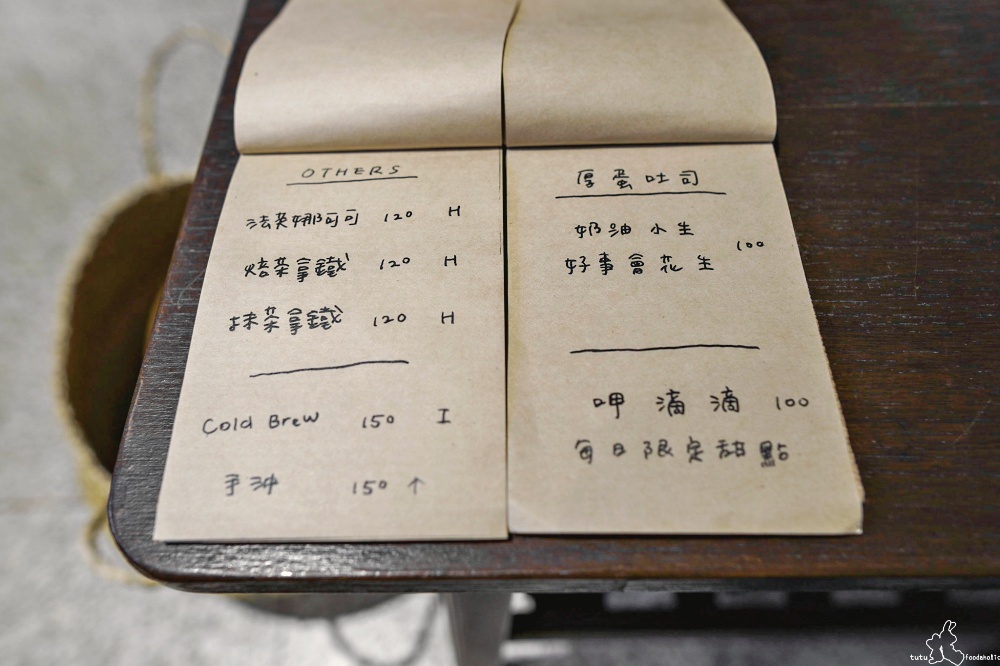 OTHERS
法芙娜可可 120 H
焙茶拿鐵 120 H
抹茶拿鐵 120 H
Cold Brew 150 I
手沖 150 ↑
厚蛋吐司
奶油小生
100
好事會花生
呷滴滴 100
每日限定甜點
tutu foodaholic